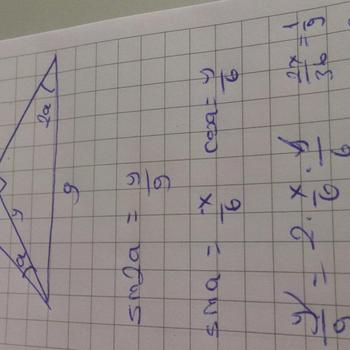 2a
9
y
a
sin2a = y/9
sina = x/6 cosa = y/6
y/9 = 2 · x/6 · y/6 2x/36 = 1/9